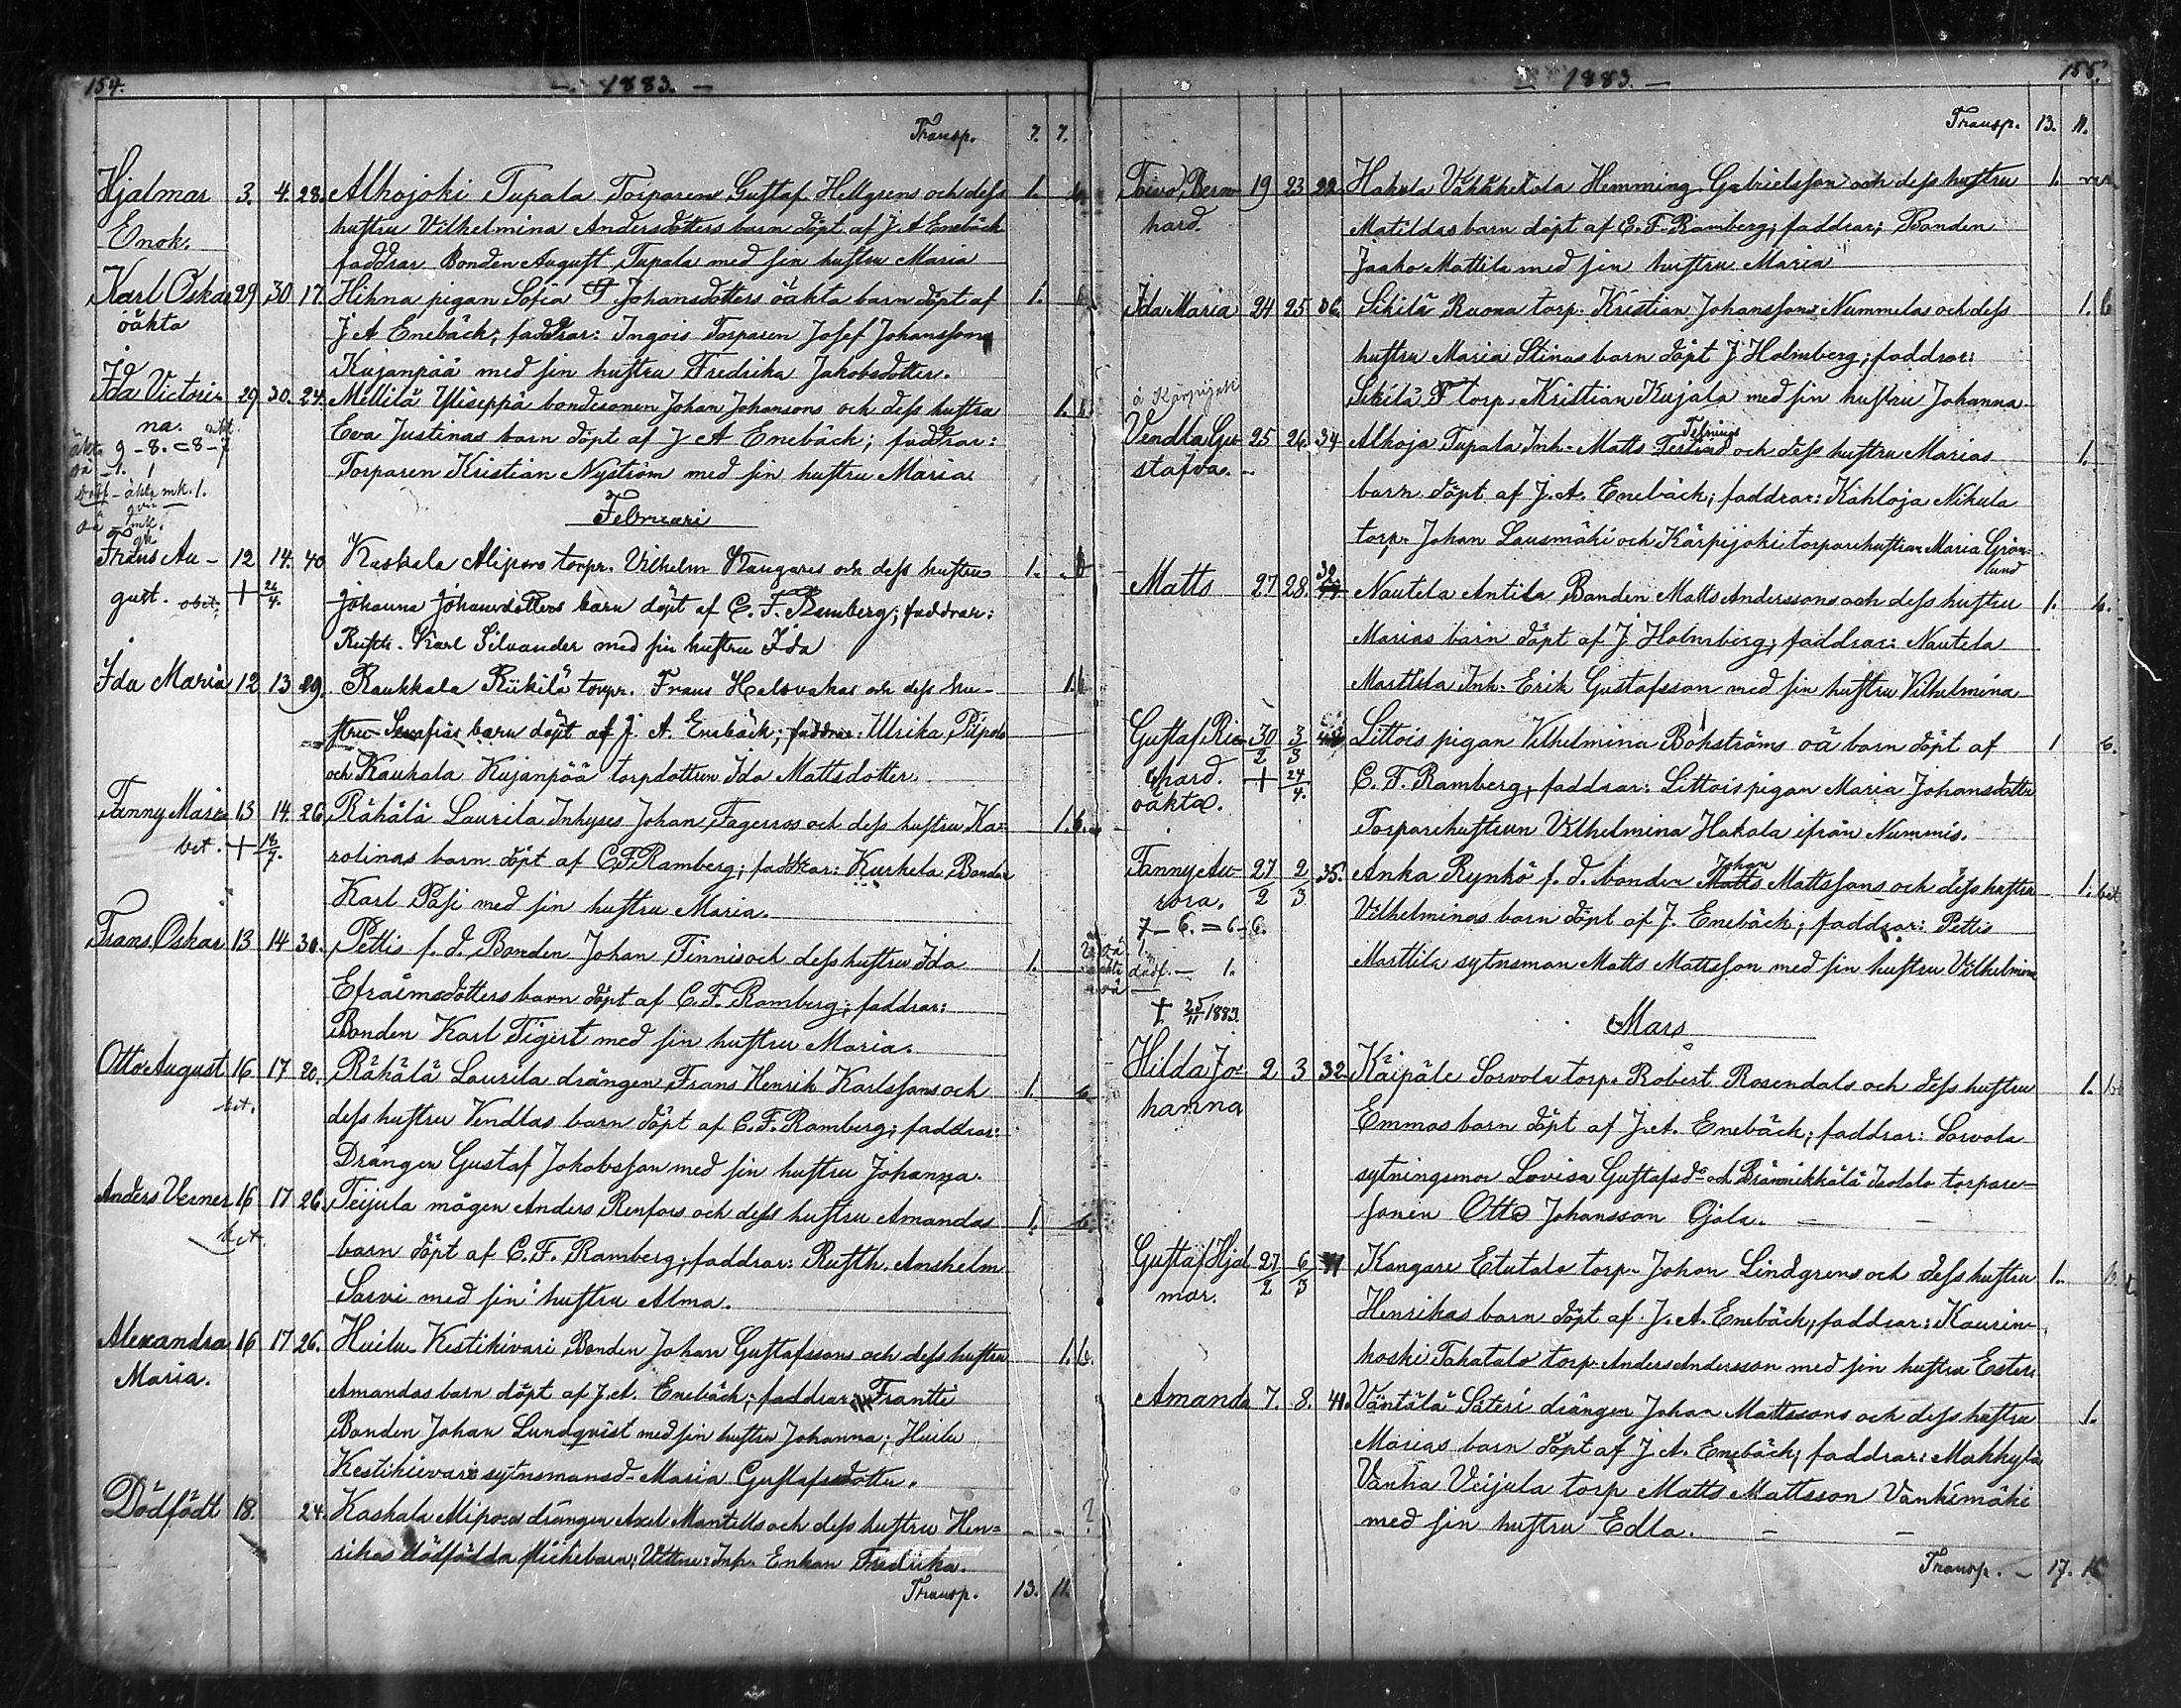 154.
- 1883. -
Transp. 7. 7.
Hjalmar 3. 4. 28. Alhojoki Tupala Torparen Gustaf Hellgrens och dess 1.
Enok. hustru Vilhelmina Andersdotters barn döpt af J. A Enebäck
faddrar Bonden August Tupala med sin hustru Maria
Karl Oskar 29 30 17. Hihna pigan Sofia Johansdotters oäkta barn döpt af 1.
oäkta J. A Enebäck; faddrar: Ingois Torparen Josef Johansson
Kujanpää med sin hustru Fredrika Jakobsdotter.
Ida Victori- 29 30. 24. Mellilä Yliseppä bondesonen Johan Johansons och dess hustru 1. b
na. Eva Justinas barn döpt af J A Enebäck; faddrar:
äkta 9 - 8. = 8 - 7
oä - 1. 1 Torparen Kristian Nyström med sin hustru Maria
Dödf - äkta mk. 1.
Februari
Frans Au- 12 14. 40 Kaskala Alipovo torpr. Vilhelm Kangares och dess hustru 1. b
gust. obet. + 24/4. Johanna Johansdotters barn döpt af C. F. Ramberg; faddrar:
Rusth. Karl Silvander med sin hustru Ida
Ida Maria 12 13 29. Raukkala Riikilä torpr. Frans Halsvahas och dess hu- 1. b
stru Serafias barn döpt af J. A. Enebäck; faddrar: Ulrika Piipolo
och Kaukala Kujanpää torpdottren Ida Mattsdotter.
Fanny Maria 13 14. 26. Rähälä Laurila Inhyses Johan Fagerros och dess hustru Ka- 1. b.
bet. + 18/7. rolinas barn döpt af C F Ramberg; faddrar: Kurkela Bonden
Karl Päsi med sin hustru Maria.
Frans Oskar 13 14 30. Pettis f. d. Bonden Johan Tinnis och dess hustru Ida 1.
Efraimsdotters barn döpt af C. F. Ramberg; faddrar:
Bonden Karl Tigert med sin hustru Maria.
Otto August 16 17 20. Rähälä Laurila drängen Frans Henrik Karlssons och 1. b
bet. dess hustru Vendlas barn döpt af C. F. Ramberg; faddrar:
Drängen Gustaf Jakobsson med sin hustru Johanna.
Anders Verner 16 17 26. Teijula mågen Anders Renfors och dess hustru Amandas 1. b.
bet. barn döpt af C. F. Ramberg; faddrar: Rusth. Anshelm
Sarvi med sin hustru Alma.
Alexandra 16 17 26. Huilu Kestikivari Bonden Johan Gustafssons och dess hustru 1. b.
Maria. Amandas barn döpt af J. A. Enebäck; faddrar: Frantti
Bonden Johan Lundqvist med sin hustru Johanna; Huilu
Kestikivari sytnsmansd- Maria Gustafsdotter.
Dödfödt 18. 24. Kaskala Alipovo drängen Axel Mantells och dess hustru Hen- - - ?
rikas dödfödda flickebarn; Vittne: Inh. Enkan Fredrika.
Transp. 13. 11.
- 1883. -
155.
Transp. 13. 11.
Toivo Bern- 19 23 22. Hakula Vähäheikola Hemming Gabrielsson och dess hustru 1.
hard. Matildas barn döpt af C. F. Ramberg; faddrar; Bonden
Jaako Mattila med sin hustru Maria
Ida Maria 24 25 36. Sikilä Ruona torp. Kristian Johanssons Nummelas och dess 1. b
hustru Maria Stinas barn döpt J Holmberg; faddrar:
Sikilä torp. Kristian Kujala med sin hustru Johanna
å Kärpijoki
Vendla Gu- 25 26. 34 Alhoja Tupala Inh- Matts och dess hustru Marias 1.
stafva. - barn döpt af J. A. Enebäck; faddrar: Kahloja Nikula
torp. Johan Lausmäki och Kärpijoki torparehustrun Maria Grön-
lund
Matts 27 28. 32 Nautela Antila Bonden Matts Anderssons och dess hustru 1. b.
Marias barn döpt af J Holmberg; faddrar: Nautela
Marttila Inh. Erik Gustafsson med sin hustru Vilhelmina
Gustaf Ri- 30/2 3/3 Littois pigan Vilhelmina Bokströms oä barn döpt af 1 b.
chard. + 24/4. C. F. Ramberg, faddrar: Littois pigan Maria Johansdotter
oäkta. Torparehustrun Vilhelmina Hakala ifrån Nummis.
Fanny Au- 27/2 2/3 35. Anka Rynkö f. d. bonden Johan Mattssons och dess hustru 1. bet
rora. Vilhelminas barn döpt af J. Enebäck; faddrar: Pettis
7 - 6. = 6 - 6.
dödf. - 1. Marttila sytnsman Matts Mattsson med sin hustru Vilhelmina
+ 25/11 1883.
Mars
Hilda Jo- 2 3 32. Käipäle Sorvola torp. Robert Rosendals och dess hustru 1.
hanna Emmas barn döpt af J. A. Enebäck; faddrar: Sorvola
sytningsmor Lovisa Gustafsd- och torpare-
sonen Otto Johansson Ojala.
Gustaf Hjal- 27/2 6/3 Kangare Etutalo torp. Johan Lindgrens och dess hustru 1.
mar. Henrikas barn döpt af J. A. Enebäck; faddrar: Kaurin-
koski Takatalo torp. Anders Andersson med sin hustru Ester.
Amanda 7. 8. 41. Väntälä Säteri drängen Johan Mattssons och dess hustru 1.
Marias barn döpt af J A. Enebäck; faddrar: Makkylä
Vanha Veijula torp Matts Mattsson Vankimäki
med sin hustru Edla.
Transp. - 17. 16